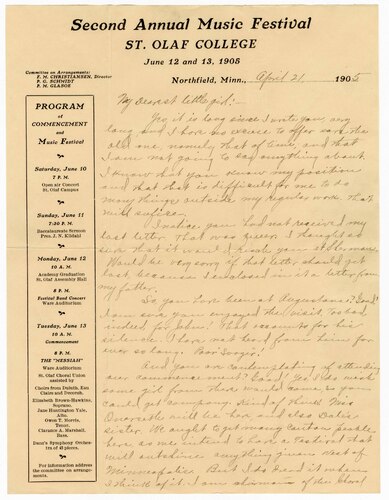 Second Annual Music Festival
ST. OLAF COLLEGE
June 12 and 13, 1905
Committee on Arrangements:
F. M. CHRISTIANSEN, Director
P. G. SCHMIDT
P. M. GLASOE
Northfield, Minn., April 21 1905
PROGRAM
of
COMMENCEMENT
and
Music Festival
Saturday, June 10
7 P. M.
Open air Concert
St. Olaf Campus
Sunday, June 11
7:30 P. M.
Baccalaureate Sermon
Pres. J. N. Kildahl
Monday, June 12
10 A. M.
Academy Graduation
St. Olaf Assembly Hall
8 P. M.
Festival Band Concert
Ware Auditorium
Tuesday, June 13
10 A. M.
Commencement
8 P. M.
THE "MESSIAH"
Ware Auditorium
St. Olaf Choral Union
assisted by
Choirs from Duluth, Eau
Claire and Decorah.
Elizabeth Brown-Hawkins,
Soprano.
Jane Huntington Yale,
Alto.
Owen T. Morris,
Tenor.
Clarence A. Marshall,
Bass.
Danz's Symphony Orchestra
of 45 pieces.
For information address
the committee on arrangements.
My dearest little girl:-
Yes it is long since I wrote you, very
long and I have no excuse to offer save the
old one, namely that of time, and that
I am not going to say anything about.
I know that you know my position
and that that is difficult for me to do
many things outside my regular work. That
will suffice.
I notice you had not received my
last letter. That was queer. I thought so
sure that it would reach you
Would be very sorry if that letter should get
lost, because I enclosed in it a letter from
my father.
So you have been at Augustana?
am sure you enjoyed the visit. Too bad
indeed for John! That accounts for his
silence. I have not heard from him for
ever so long. Poor
And you are contemplating of attending
our commencement? Good!
some girl from there would come so you
could get company. Kind of think Miss
Overseth will be here and also Dale's
sister. We ought to get many Canton people
here as we intend to have a festival that
will outshine anything given west of
Minneapolis. But I do dread it when
I think of it. I am chairman of the Choral